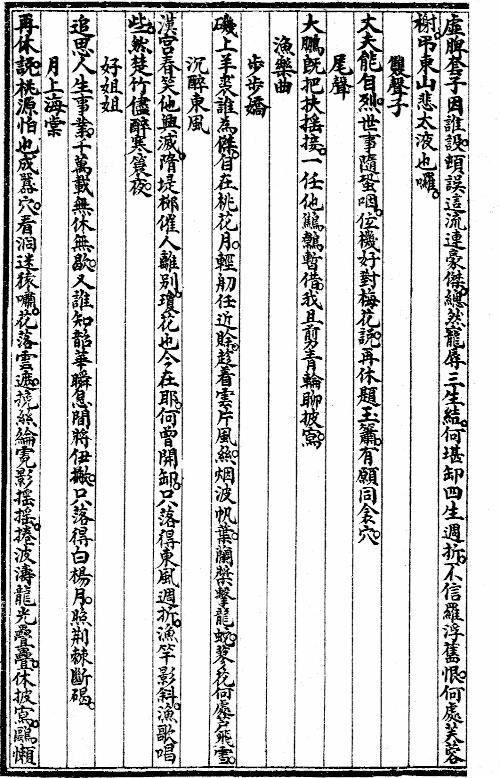 虛脾套子因誰設頓誤這流連豪傑總然寵辱三生結何堪卸四生週折不信羅浮舊恨何處芙蓉
榭弔東山悲太液也囉
雙聲子
大夫能自烈世事隨蛩咽位機好對梅花說再休題玉簫有願同衾穴
尾聲
大鵬旣把扶搖接一任他鷦鷯暫借我且剪青輪聊披寫
漁樂曲
步步嬌
磯上羊裘誰為傑自在桃花月輕舠任近賒趁着雲片風絲烟波帆葉蘭槳擊龍蛇蓼花何處飛雪
沉醉東風
漢宮春笑他興滅隋堤柳催人離別瓊花也今在耶何曾開卸只落得東風週折漁竿影斜漁歌唱
些然楚竹儘醉寒簑夜
好姐姐
追思人生事業千萬載無休無歇又誰知韶華瞬息間將伊撇只落得白楊月照荆棘斷碣
月上海棠
再休說桃源怕也成蟻穴看洞迷猿嘯花落雲遮競絲綸霓影搖搖捲波濤龍光疊疊休披寫鷗懶